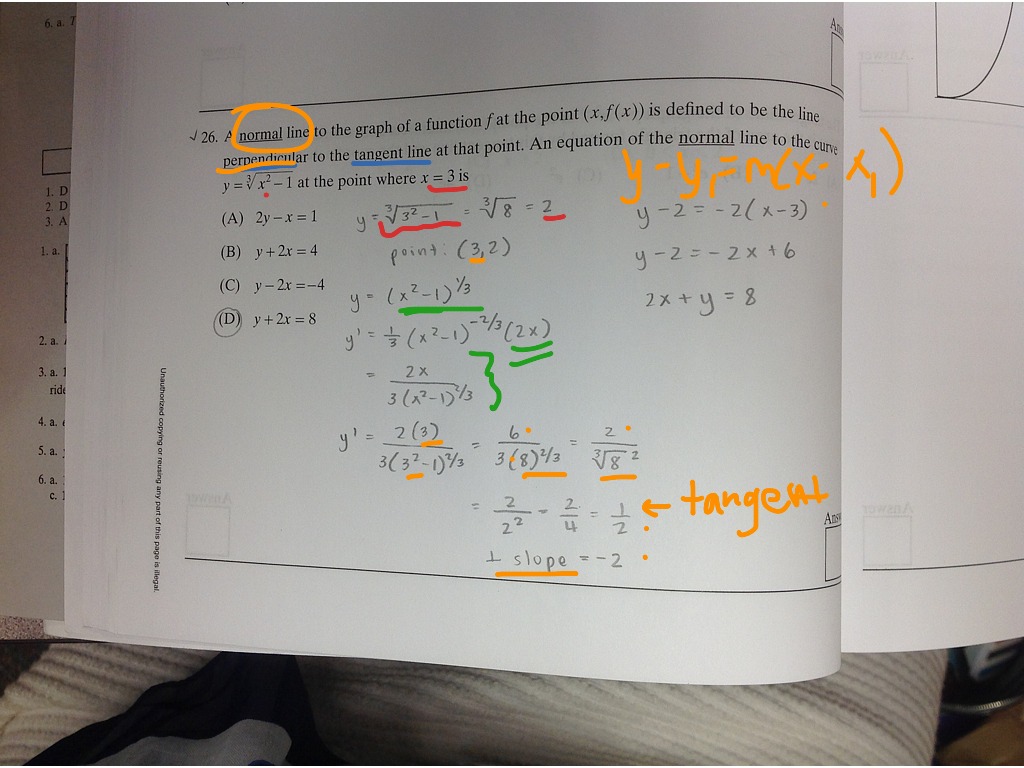 6. a.
Answer
√ 26. A normal line to the graph of a function f at the point (x,f(x)) is defined to be the line
perpendicular to the tangent line at that point. An equation of the normal line to the curve
y = ∛(x² − 1) at the point where x = 3 is
y - y₁ = m(x - x₁)
(A) 2y − x = 1
(B) y + 2x = 4
(C) y − 2x = −4
(D) y + 2x = 8
y = ∛(3² − 1) = ∛8 = 2
point: (3,2)
y = (x² − 1)^1/3
y' = 1/3 (x² − 1)^−2/3 (2x)
= 2x / 3(x² − 1)^2/3
y' = 2(3) / 3(3² − 1)^2/3 = 6 / 3(8)^2/3 = 2 / ∛8 ²
= 2/2² = 2/4 = 1/2 ← tangent
⊥ slope = −2
y − 2 = −2(x − 3)
y − 2 = −2x + 6
2x + y = 8
1. D
2. D
3. A
1. a.
2. a.
3. a.
ride
4. a.
5. a.
6. a.
c.
Unauthorized copying or reusing any part of this page is illegal.
Answer
Answer
Answer
Ans